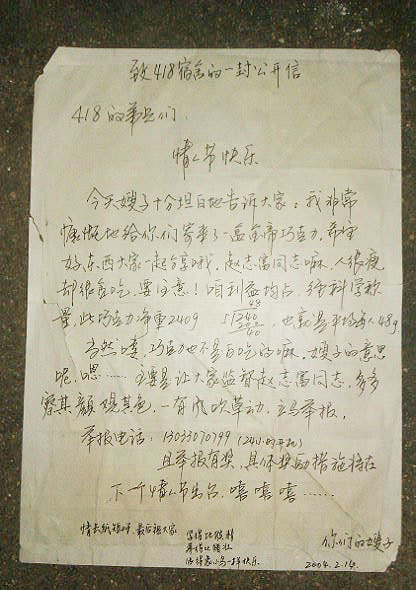 致418宿舍的一封公开信
418的弟兄们：
情人节快乐
今天嫂子十分坦白地告诉大家：我非常
慷慨地给你们寄来了一盒金帝巧克力，希望
好东西大家一起分享哦，赵志富同志嘛，人很瘦
却很贪吃，要注意！咱利益均占，经科学称
量，此巧克力净重240g 5 240 48 200 40，也就是平均每人48g
当然喽，巧克力也不是白吃的嘛，嫂子的意思
呢，嗯……主要是让大家监督赵志富同志，多多
察其颜观其色，一有风吹草动，立马举报，
举报电话：13033070799（24小时开机）
且举报有奖，具体奖励措施将在
下一个情人节出台，嘻嘻嘻……
最后祝大家
一样快乐
你们的嫂子
2004.2.14